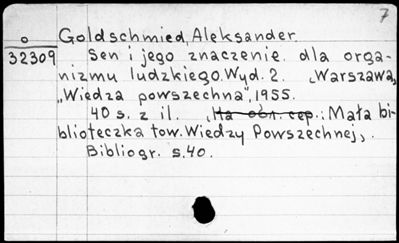 7
Goldschmied, Aleksander.
o
32309
Sen i jego znaczenie dla orga-
nizmu ludzkiego. Wyd. 2. Warszawa,
"Wiedza powszechna", 1955.
40 s. z il. Na obr. cep.: Mała bi-
blioteczka tow. Wiedzy Powszechnej.
Bibliogr. s. 40.